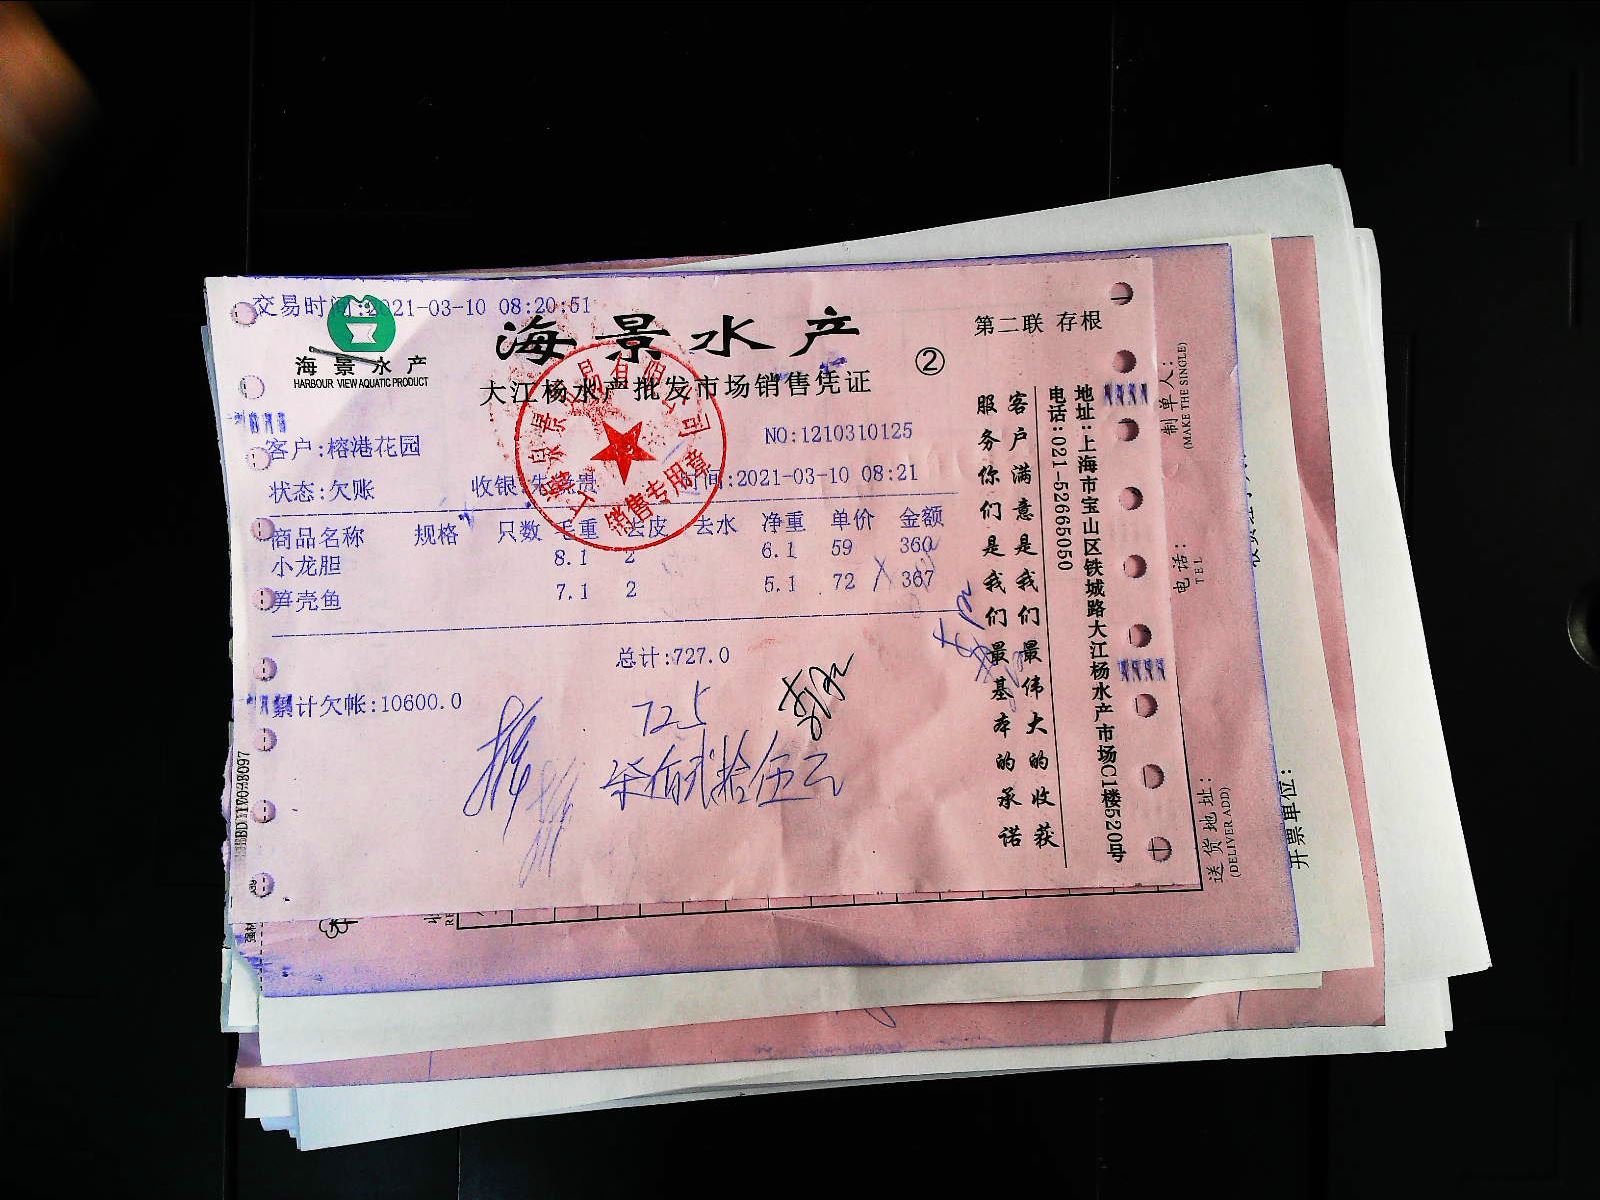 交易时间:2021-03-10 08:20:51
海景水产
HARBOUR VIEW AQUATIC PRODUCT
海景水产
大江杨水产批发市场销售凭证
②
第二联 存根
客户:榕港花园
NO:1210310125
状态:欠账 收银: 时间:2021-03-10 08:21
商品名称 规格 只数 毛重 去皮 去水 净重 单价 金额
小龙胆 8.1 2 6.1 59 360
笋壳鱼 7.1 2 5.1 72 367
总计:727.0
累计欠帐:10600.0
725
柒佰贰拾伍元
销售专用章
客户满意是我们最伟大的收获
服务你们是我们最基本的承诺
地址:上海市宝山区铁城路大江杨水产市场C1楼520号
电话:021-52665050
制单人:
(MAKE THE SINGLE)
电话:
TEL
送货地址:
(DELIVER ADD)
开票单位: